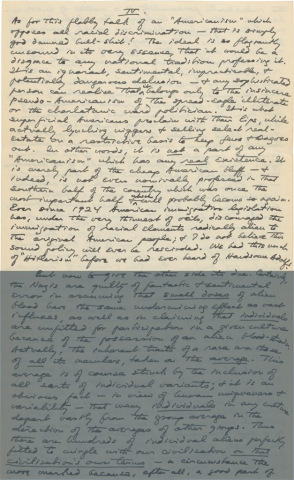 IV.
As for this flabby talk of an "Americanism" which
opposes all racial discrimination — that is simply
god damned bull-shit! The ideal is so flagrantly
unsound in its very essence, that it would be a
disgrace to any national tradition professing it.
It is an ignorant, sentimental, impractical, &
potentially dangerous delusion — & any sophisticated
person can realise that it belongs only to the insincere
pseudo-Americanism of the spread-eagle illiterate
or the charlatanic ward politician. It is what
superficial Americans proclaim with their lips, while
actually lynching niggers & selling select real-
estate on a restrictive basis to keep Jews & Dagoes
out. In other words, it is not part of any
"Americanism" which has any real existence. It
is merely part of the cheap American bluff — &
indeed, is not even nominally professed in that
southern half of the country which was once the
most important half & will probably become so again.
Ever since 1924 American immigration legislation
has, under the very thinnest of veils, discouraged the
immigration of racial elements radically alien to
the original American people; & I do not believe this
sound policy will ever be rescinded. We had this much
of "Hitlerism" before we had ever heard of Handsome Adolf!
But now to give the other side its due.
the Nazis are guilty of fantastic & sentimental
error in assuming that small doses of alien
blood have the same undermining effect as mass
influxes, as well as in claiming that individuals
are unfitted for participation in a given culture
because of the possession of an alien blood-stain.
Actually, the inherent traits of a race are those
of all its members, taken on the average. This
average is of course struck by the inclusion of
all sorts of individual variants; & it is an
obvious fact — in view of human
variability — that many individuals in any
depart vastly from the group average in the
direction of the averages of other groups. Thus
there are hundreds of individual aliens perfectly
fitted to mingle with our civilisation on that
civilisation's own terms — a circumstance the
more marked because, after all, a good part of